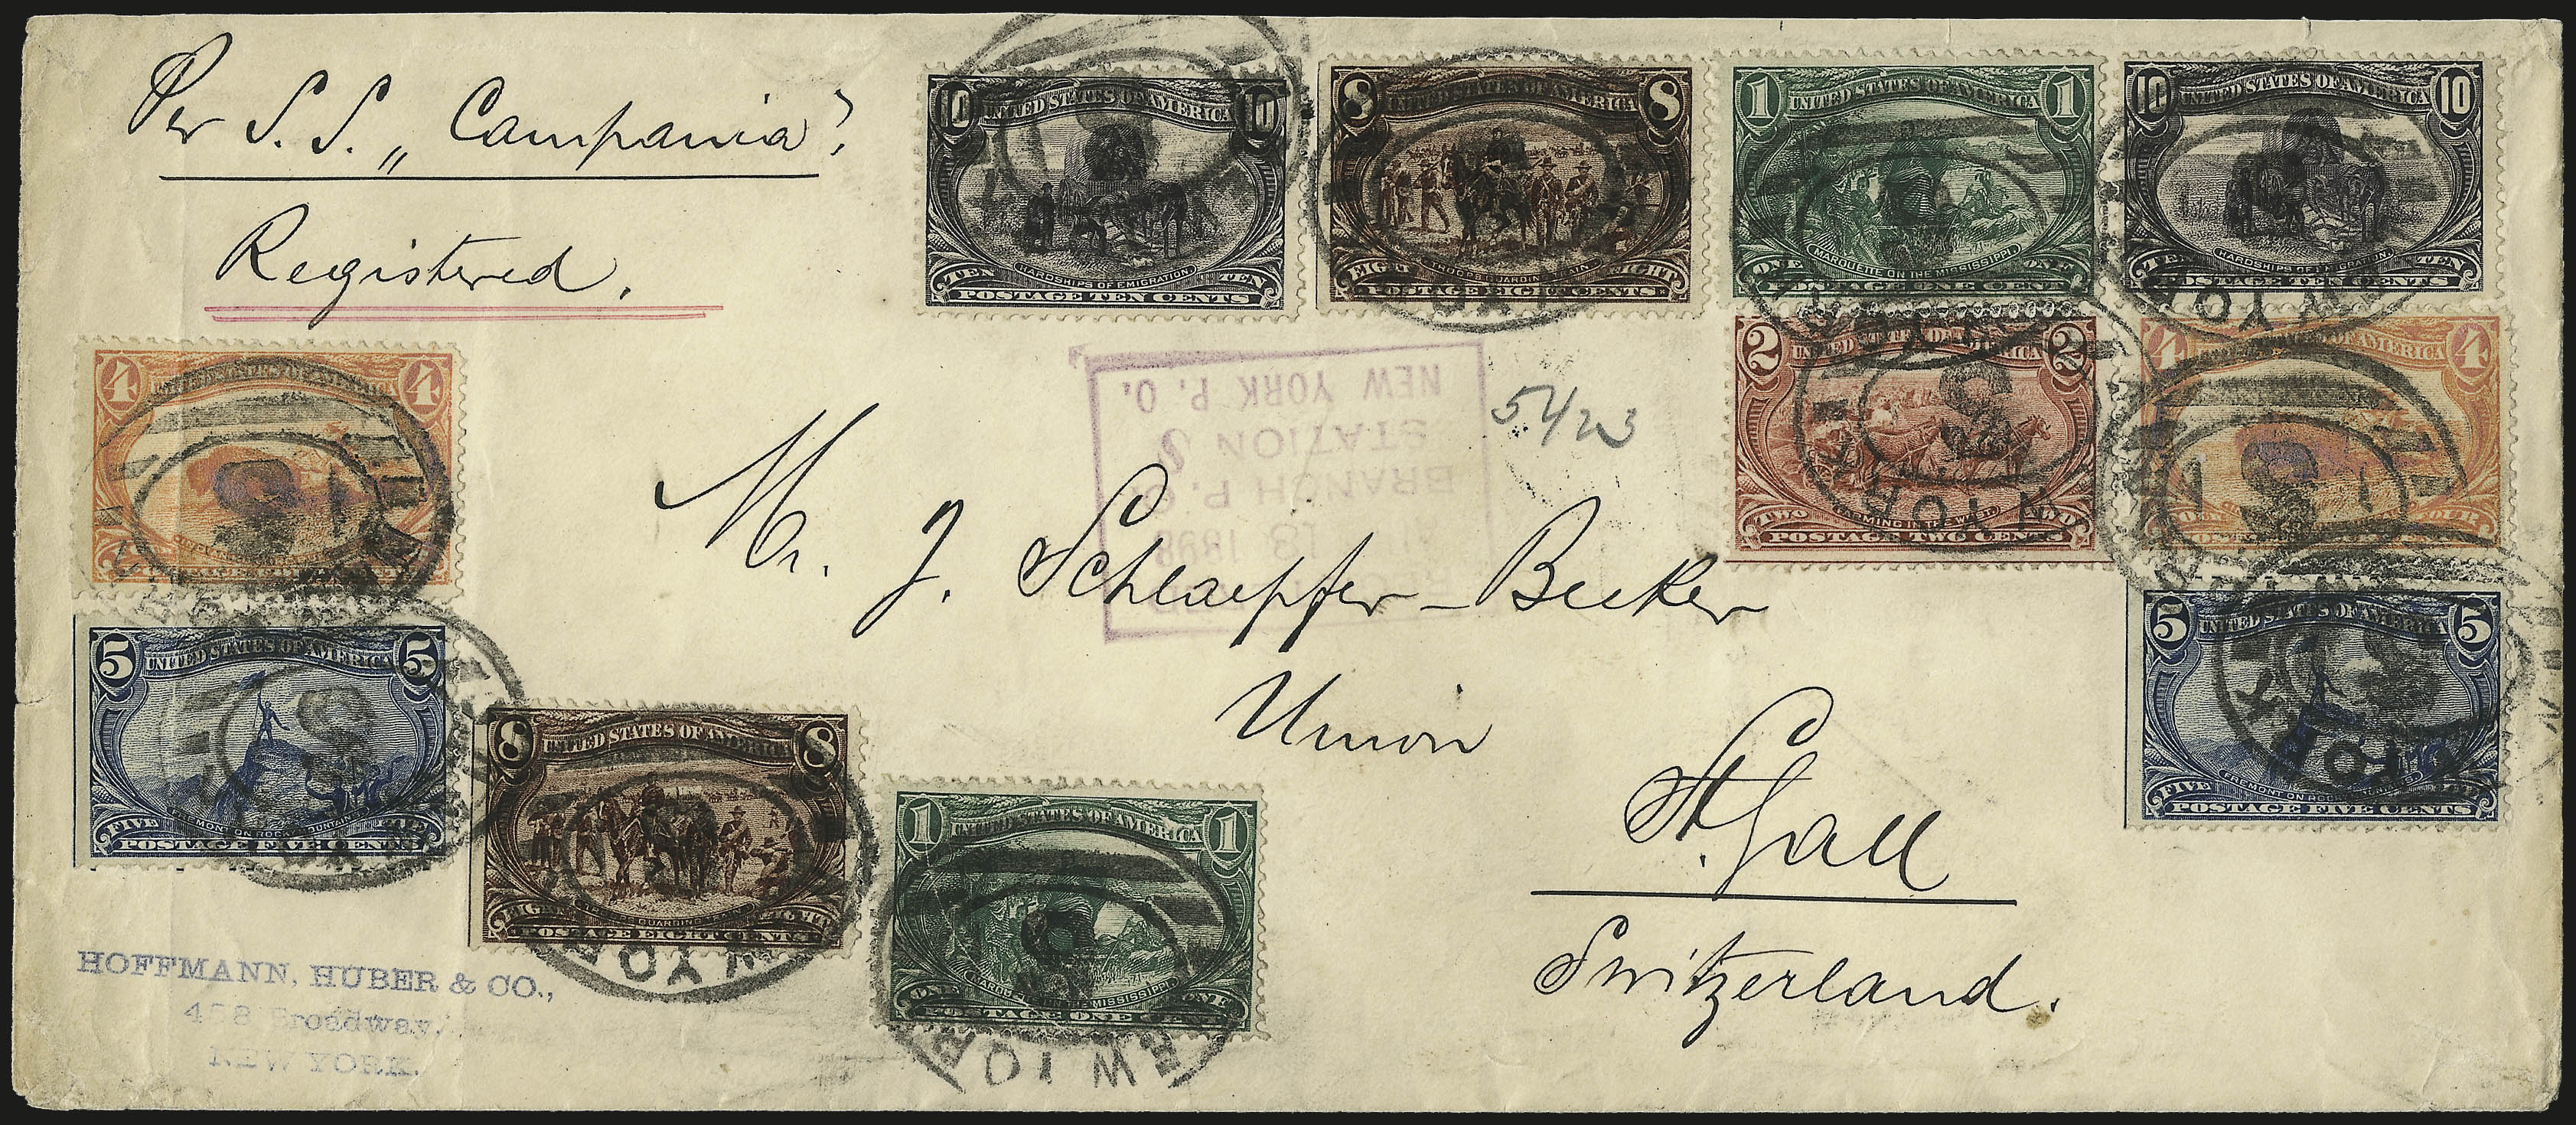 Per S.S. „Campania”,
Registered.
10 UNITED STATES OF AMERICA 10
TEN HARDSHIPS OF EMIGRATION TEN
POSTAGE TEN CENTS
8 UNITED STATES OF AMERICA 8
EIGHT TROOPS GUARDING TRAIN EIGHT
POSTAGE EIGHT CENTS
1 UNITED STATES OF AMERICA 1
ONE MARQUETTE ON THE MISSISSIPPI ONE
POSTAGE ONE CENT
10 UNITED STATES OF AMERICA 10
TEN HARDSHIPS OF EMIGRATION TEN
POSTAGE TEN CENTS
4 UNITED STATES OF AMERICA 4
2 UNITED STATES OF AMERICA 2
TWO FARMING IN THE WEST TWO
POSTAGE TWO CENTS
4 UNITED STATES OF AMERICA 4
NEW YORK P. O.
STATION S
BRANCH P. O.
13 1898
54/23
Mr. J. Schlaepfer-Becker
Union
St. Gall
Switzerland.
5 UNITED STATES OF AMERICA 5
FIVE FREMONT ON ROCKY MOUNTAINS FIVE
POSTAGE FIVE CENTS
8 UNITED STATES OF AMERICA 8
EIGHT TROOPS GUARDING TRAIN EIGHT
POSTAGE EIGHT CENTS
1 UNITED STATES OF AMERICA 1
ONE MARQUETTE ON THE MISSISSIPPI ONE
POSTAGE ONE CENT
5 UNITED STATES OF AMERICA 5
FIVE FREMONT ON ROCKY MOUNTAINS
POSTAGE FIVE CENTS
NEW YORK
S
HOFFMANN, HUBER & CO.,
458 Broadway,
NEW YORK.